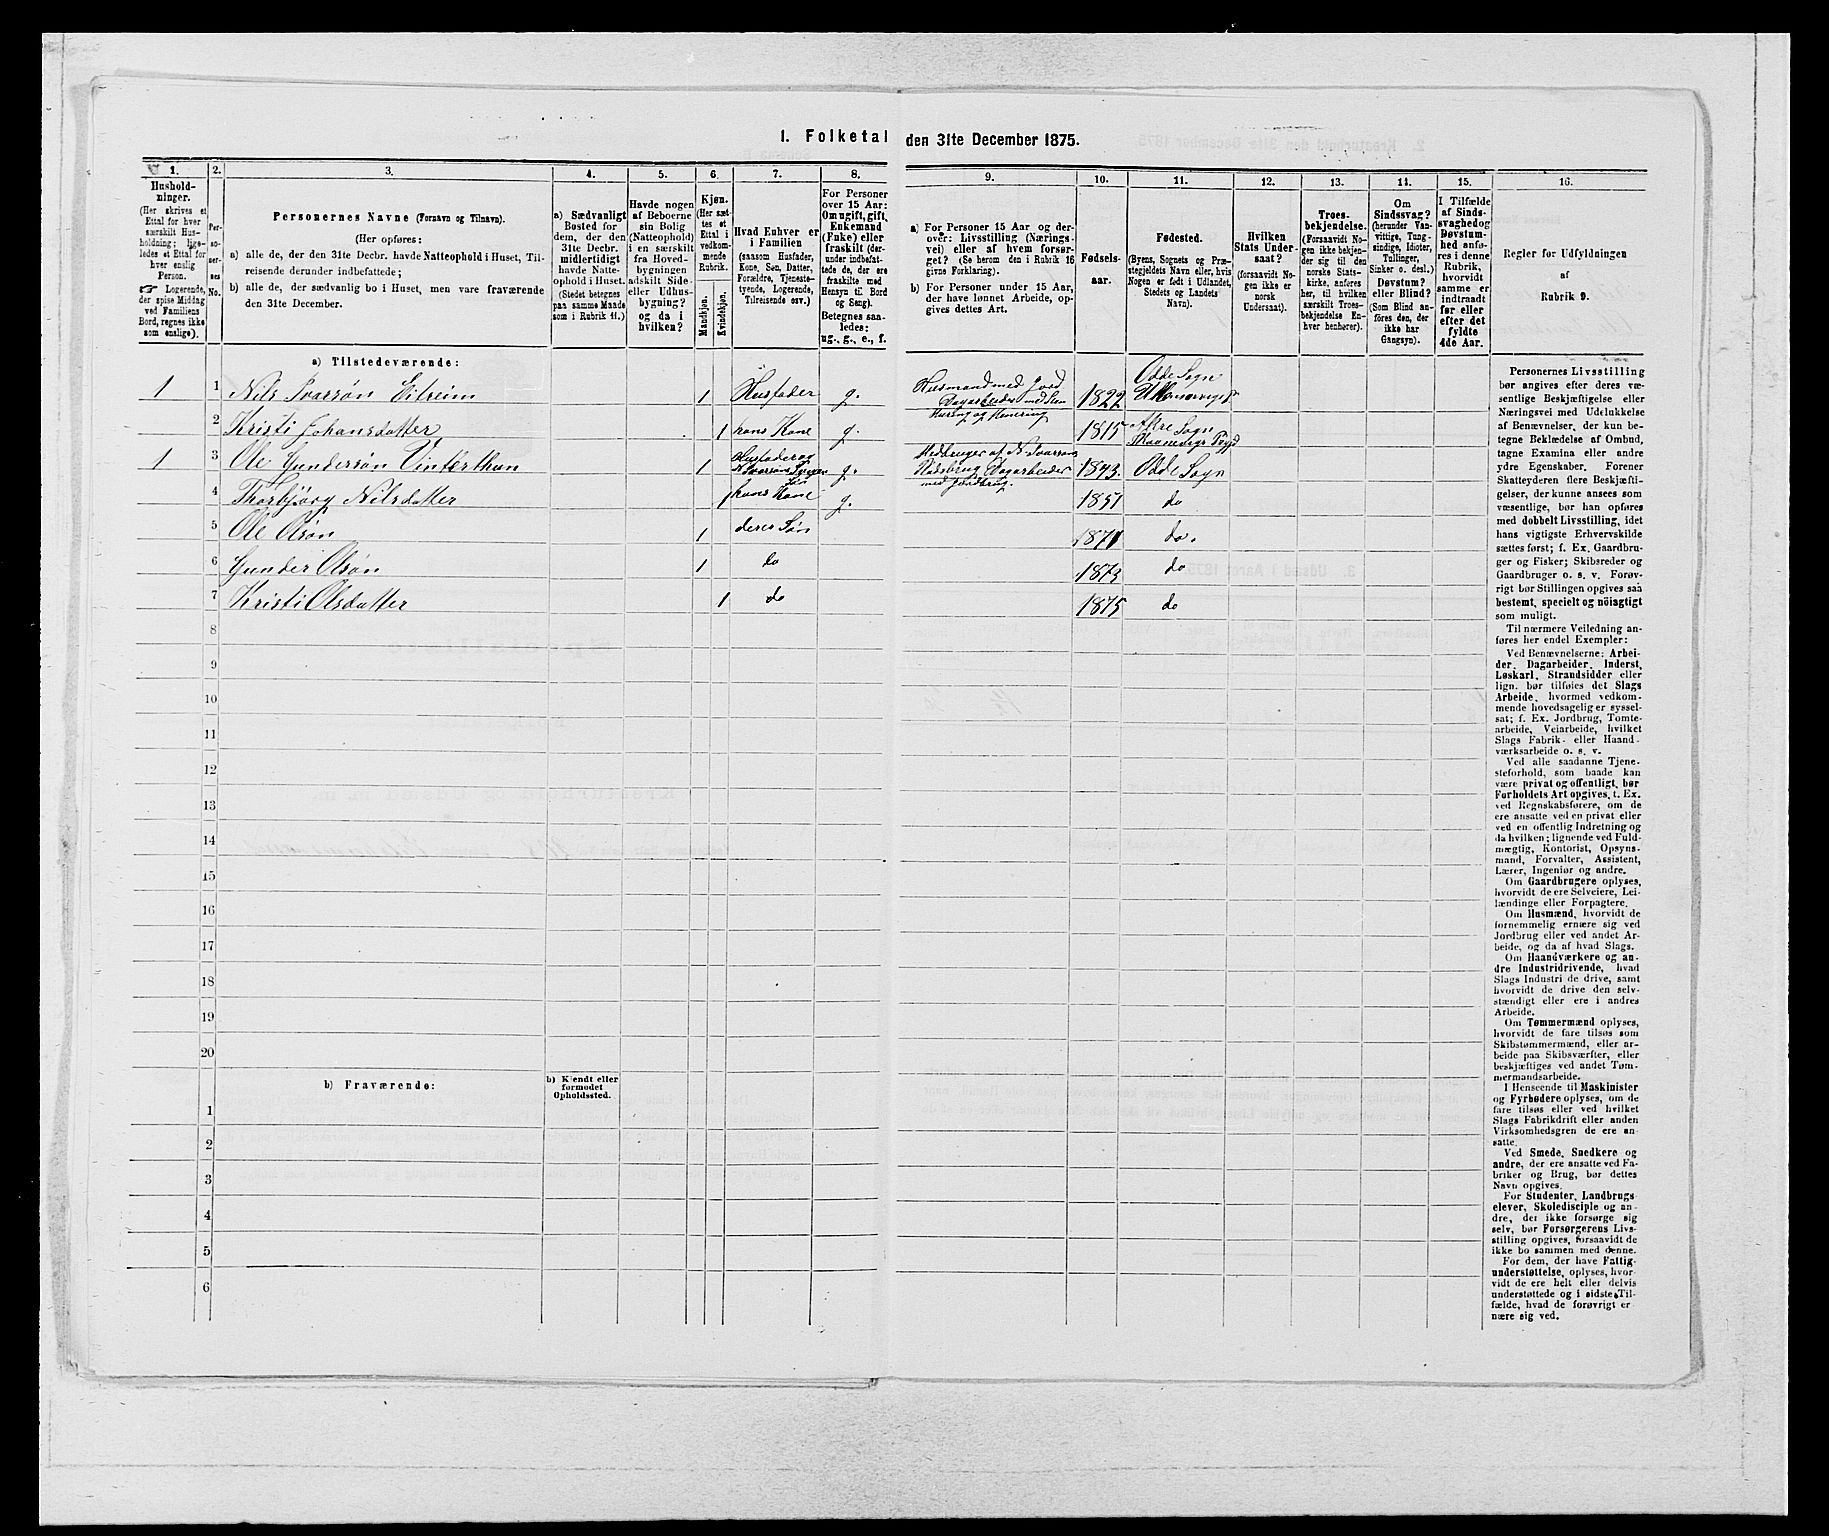 1. Folketal den 31te December 1875.
1. 2. 3. 4. 5. 6. 7. 8. 9. 10. 11. 12. 13. 14. 15. 16.
Hushold-
ninger.
(Her skrives et
Ettal for hver
særskilt Hus-
holdning; lige-
ledes et Ettal for
hver enslig
Person.
☞ Logerende,
der spise Middag
ved Familiens
Bord, regnes ikke
som enslige).
Per-
so-
ner-
nes
No.
Personernes Navne (Fornavn og Tilnavn).
(Her opføres:
a) alle de, der den 31te Decbr. havde Natteophold i Huset, Til-
reisende derunder indbefattede;
b) alle de, der sædvanlig bo i Huset, men vare fraværende
den 31te December.
a) Sædvanligt
Bosted for
dem, der den
31te Decbr.
midlertidigt
havde Natte-
ophold i Huset.
(Stedet betegnes
paa samme Maade
som i Rubrik 11.)
Havde nogen
af Beboerne
sin Bolig
(Natteophold)
i en særskilt
fra Hoved-
bygningen
adskilt Side-
eller Udhus-
bygning?
og da i
hvilken?
Kjøn.
(Her sæt-
tes et
Ettal i
vedkom-
mende
Rubrik.
Mandkjøn.
Kvindekjøn.
Hvad Enhver er
i Familien
(saasom Husfader,
Kone, Søn, Datter,
Forældre, Tjeneste-
tyende, Logerende,
Tilreisende osv.)
For Personer
over 15 Aar:
Om ugift, gift,
Enkemand
(Enke) eller
fraskilt (der-
under indbefat-
tede de, der ere
fraskilte med
Hensyn til Bord
og Seng).
Betegnes saa-
ledes:
ug., g., e., f.
a) For Personer 15 Aar og der-
over: Livsstilling (Nærings-
vei) eller af hvem forsør-
get? (Se herom den i Rubrik 16
givne Forklaring).
b) For Personer under 15 Aar,
der have lønnet Arbeide, op-
gives dettes Art.
Fødsels-
aar.
Fødested.
(Byens, Sognets og Præ-
stegjeldets Navn eller, hvis
Nogen er født i Udlandet,
Stedets og Landets
Navn).
Hvilken
Stats Under-
saat?
(forsaavidt No-
gen ikke er
norsk
Undersaat).
Troes-
bekjendelse.
(Forsaavidt No-
gen ikke bekjen-
der sig til den
norske Stats-
kirke, anføres
her, til hvilken
særskilt Troes-
bekjendelse En-
hver henhører).
Om
Sindssvag?
(herunder Van-
vittige, Tung-
sindige, Idioter,
Tullinger,
Sinker o. desl.)
Døvstum?
eller Blind?
(Som Blind an-
føres den, der
ikke har
Gangsyn).
I Tilfælde
af Sinds-
svaghed og
Døvstum-
hed anfø-
res i denne
Rubrik,
hvorvidt
samme er
indtraadt
før eller
efter det
fyldte
4de Aar.
Regler for Udfyldningen
af
Rubrik 9.
a) Tilstedeværende:
1 1 Nils Svarsøn Eitreim 1 Husfader g. Husmand med Jord Dagarbeider 1822 Odde Sogn
2 Kristi Johansdatter 1 hans Kone g. 1815 Sogn
1 3 Ole Gundersøn Vinterthun 1 Husfader og g. Dagarbeider 1843 Odde Sogn
4 Thorbjørg Nilsdatter 1 hans Kone g. 1851 do
5 Ole Olsøn 1 deres Søn 1871 do.
6 Gunder Olsøn 1 do 1873 do
7 Kristi Olsdatter 1 do 1875 do
8
9
10
11
12
13
14
15
16
17
18
19
20
b) Fraværende:
b) Kjendt eller
formodet
Opholdssted.
1
2
3
4
5
6
Personernes Livsstilling
bør angives efter deres væ-
sentlige Beskjæftigelse eller
Næringsvei med Udelukkelse
af Benævnelser, der kun be-
tegne Beklædelse af Ombud,
tagne Examina eller andre
ydre Egenskaber. Forener
Skatteyderen flere Beskjæfti-
gelser, der kunne ansees som
væsentlige, bør han opføres
med dobbelt Livsstilling, idet
hans vigtigste Erhvervskilde
sættes først; f. Ex. Gaardbru-
ger og Fisker; Skibsreder og
Gaardbruger o. s. v. Forøv-
rigt bør Stillingen opgives saa
bestemt, specielt og nöiagtigt
som muligt.
Til nærmere Veiledning an-
føres her endel Exempler:
Ved Benævnelserne: Arbei-
der, Dagarbeider, Inderst,
Løskarl, Strandsidder eller
lign. bør tilføies det Slags
Arbeide, hvormed vedkom-
mende hovedsagelig er syssel-
sat; f. Ex. Jordbrug, Tomte-
arbeide, Veiarbeide, hvilket
Slags Fabrik- eller Haand-
værksarbeide o. s. v.
Ved alle saadanne Tjene-
steforhold, som baade kan
være privat og offentligt, bør
Forholdets Art opgives, t. Ex.
ved Regnskabsførere, om de
ere ansatte ved en privat eller
ved en offentlig Indretning og
da hvilken; lignende ved Fuld-
mægtig, Kontorist, Opsyns-
mand, Forvalter, Assistent,
Lærer, Ingeniør og andre.
Om Gaardbrugere oplyses,
hvorvidt de ere Selveiere, Lei-
lændinge eller Forpagtere.
Om Husmænd, hvorvidt de
fornemmelig ernære sig ved
Jordbrug eller ved andet Ar-
beide, og da af hvad Slags.
Om Haandværkere og an-
dre Industridrivende, hvad
Slags Industri de drive, samt
hvorvidt de drive den selv-
stændigt eller ere i andres
Arbeide.
Om Tømmermænd oplyses,
hvorvidt de fare tilsøs som
Skibstømmermænd, eller ar-
beide paa Skibsværfter, eller
beskjæftiges ved andet Tøm-
mermandsarbeide.
I Henseende til Maskinister
og Fyrbødere oplyses, om de
fare tilsøs eller ved hvilket
Slags Fabrikdrift eller anden
Virksomhedsgren de ere an-
satte.
Ved Smede, Snedkere og
andre, der ere ansatte ved Fa-
briker og Brug, bør dettes
Navn opgives.
For Studenter, Landbrugs-
elever, Skoledisciple og an-
dre, der ikke forsørge sig
selv, bør Forsørgerens Livs-
stilling opgives, forsaavidt de
ikke bo sammen med denne.
For dem, der have Fattig-
understøttelse, oplyses, hvor-
vidt de ere helt eller delvis
understøttede og i sidste Til-
fælde, hvad de forøvrigt er
nære sig ved.